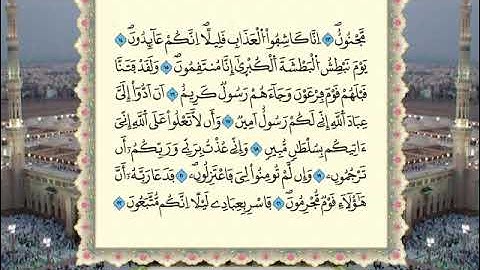 مَّجْنُونٌ ۝١٤ إِنَّا كَاشِفُوا۟ ٱلْعَذَابِ قَلِيلًا إِنَّكُمْ عَآئِدُونَ ۝١٥
يَوْمَ نَبْطِشُ ٱلْبَطْشَةَ ٱلْكُبْرَىٰٓ إِنَّا مُنتَقِمُونَ ۝١٦ وَلَقَدْ فَتَنَّا
قَبْلَهُمْ قَوْمَ فِرْعَوْنَ وَجَآءَهُمْ رَسُولٌ كَرِيمٌ ۝١٧ أَنْ أَدُّوٓا۟ إِلَىَّ
عِبَادَ ٱللَّهِ إِنِّى لَكُمْ رَسُولٌ أَمِينٌ ۝١٨ وَأَن لَّا تَعْلُوا۟ عَلَى ٱللَّهِ إِنِّىٓ
ءَاتِيكُم بِسُلْطَٰنٍ مُّبِينٍ ۝١٩ وَإِنِّى عُذْتُ بِرَبِّى وَرَبِّكُمْ أَن
تَرْجُمُونِ ۝٢٠ وَإِن لَّمْ تُؤْمِنُوا۟ لِى فَٱعْتَزِلُونِ ۝٢١ فَدَعَا رَبَّهُۥٓ أَنَّ
هَٰٓؤُلَآءِ قَوْمٌ مُّجْرِمُونَ ۝٢٢ فَأَسْرِ بِعِبَادِى لَيْلًا إِنَّكُم مُّتَّبَعُونَ ۝٢٣